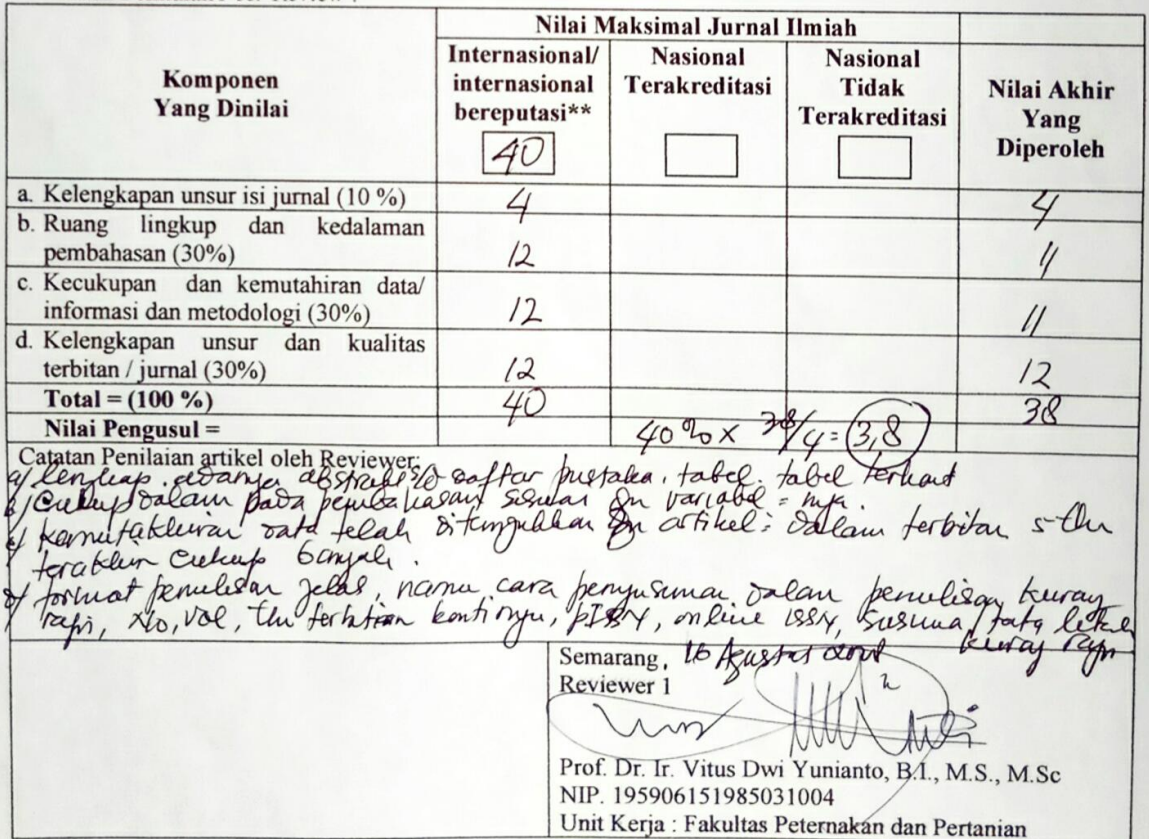 Nilai Maksimal Jurnal Ilmiah
Komponen
Yang Dinilai
Internasional/
internasional
bereputasi**
40
Nasional
Terakreditasi
Nasional
Tidak
Terakreditasi
Nilai Akhir
Yang
Diperoleh
a. Kelengkapan unsur isi jurnal (10 %) 4 4
b. Ruang lingkup dan kedalaman
pembahasan (30%) 12 11
c. Kecukupan dan kemutahiran data/
informasi dan metodologi (30%) 12 11
d. Kelengkapan unsur dan kualitas
terbitan / jurnal (30%) 12 12
Total = (100 %) 40 38
Nilai Pengusul = 40% x 38/4 = 3,8
Catatan Penilaian artikel oleh Reviewer:
a/ lengkap, adanya abstrak s/d daftar pustaka, tabel-tabel
b/ Cukup dalam pada pembahasan sesuai dn variabel = nya.
c/ kemutakhiran data telah dn artikel = dalam terbitan 5 thn
terakhir cukup banyak.
d/ format penulisan jelas, namu cara penyusunan dalam penulisan kurang
rapi, No, vol, thn, online ISSN, tata letak
kurang rapi
Semarang, 16 Agustus
Reviewer 1
Prof. Dr. Ir. Vitus Dwi Yunianto, B.I., M.S., M.Sc
NIP. 195906151985031004
Unit Kerja : Fakultas Peternakan dan Pertanian